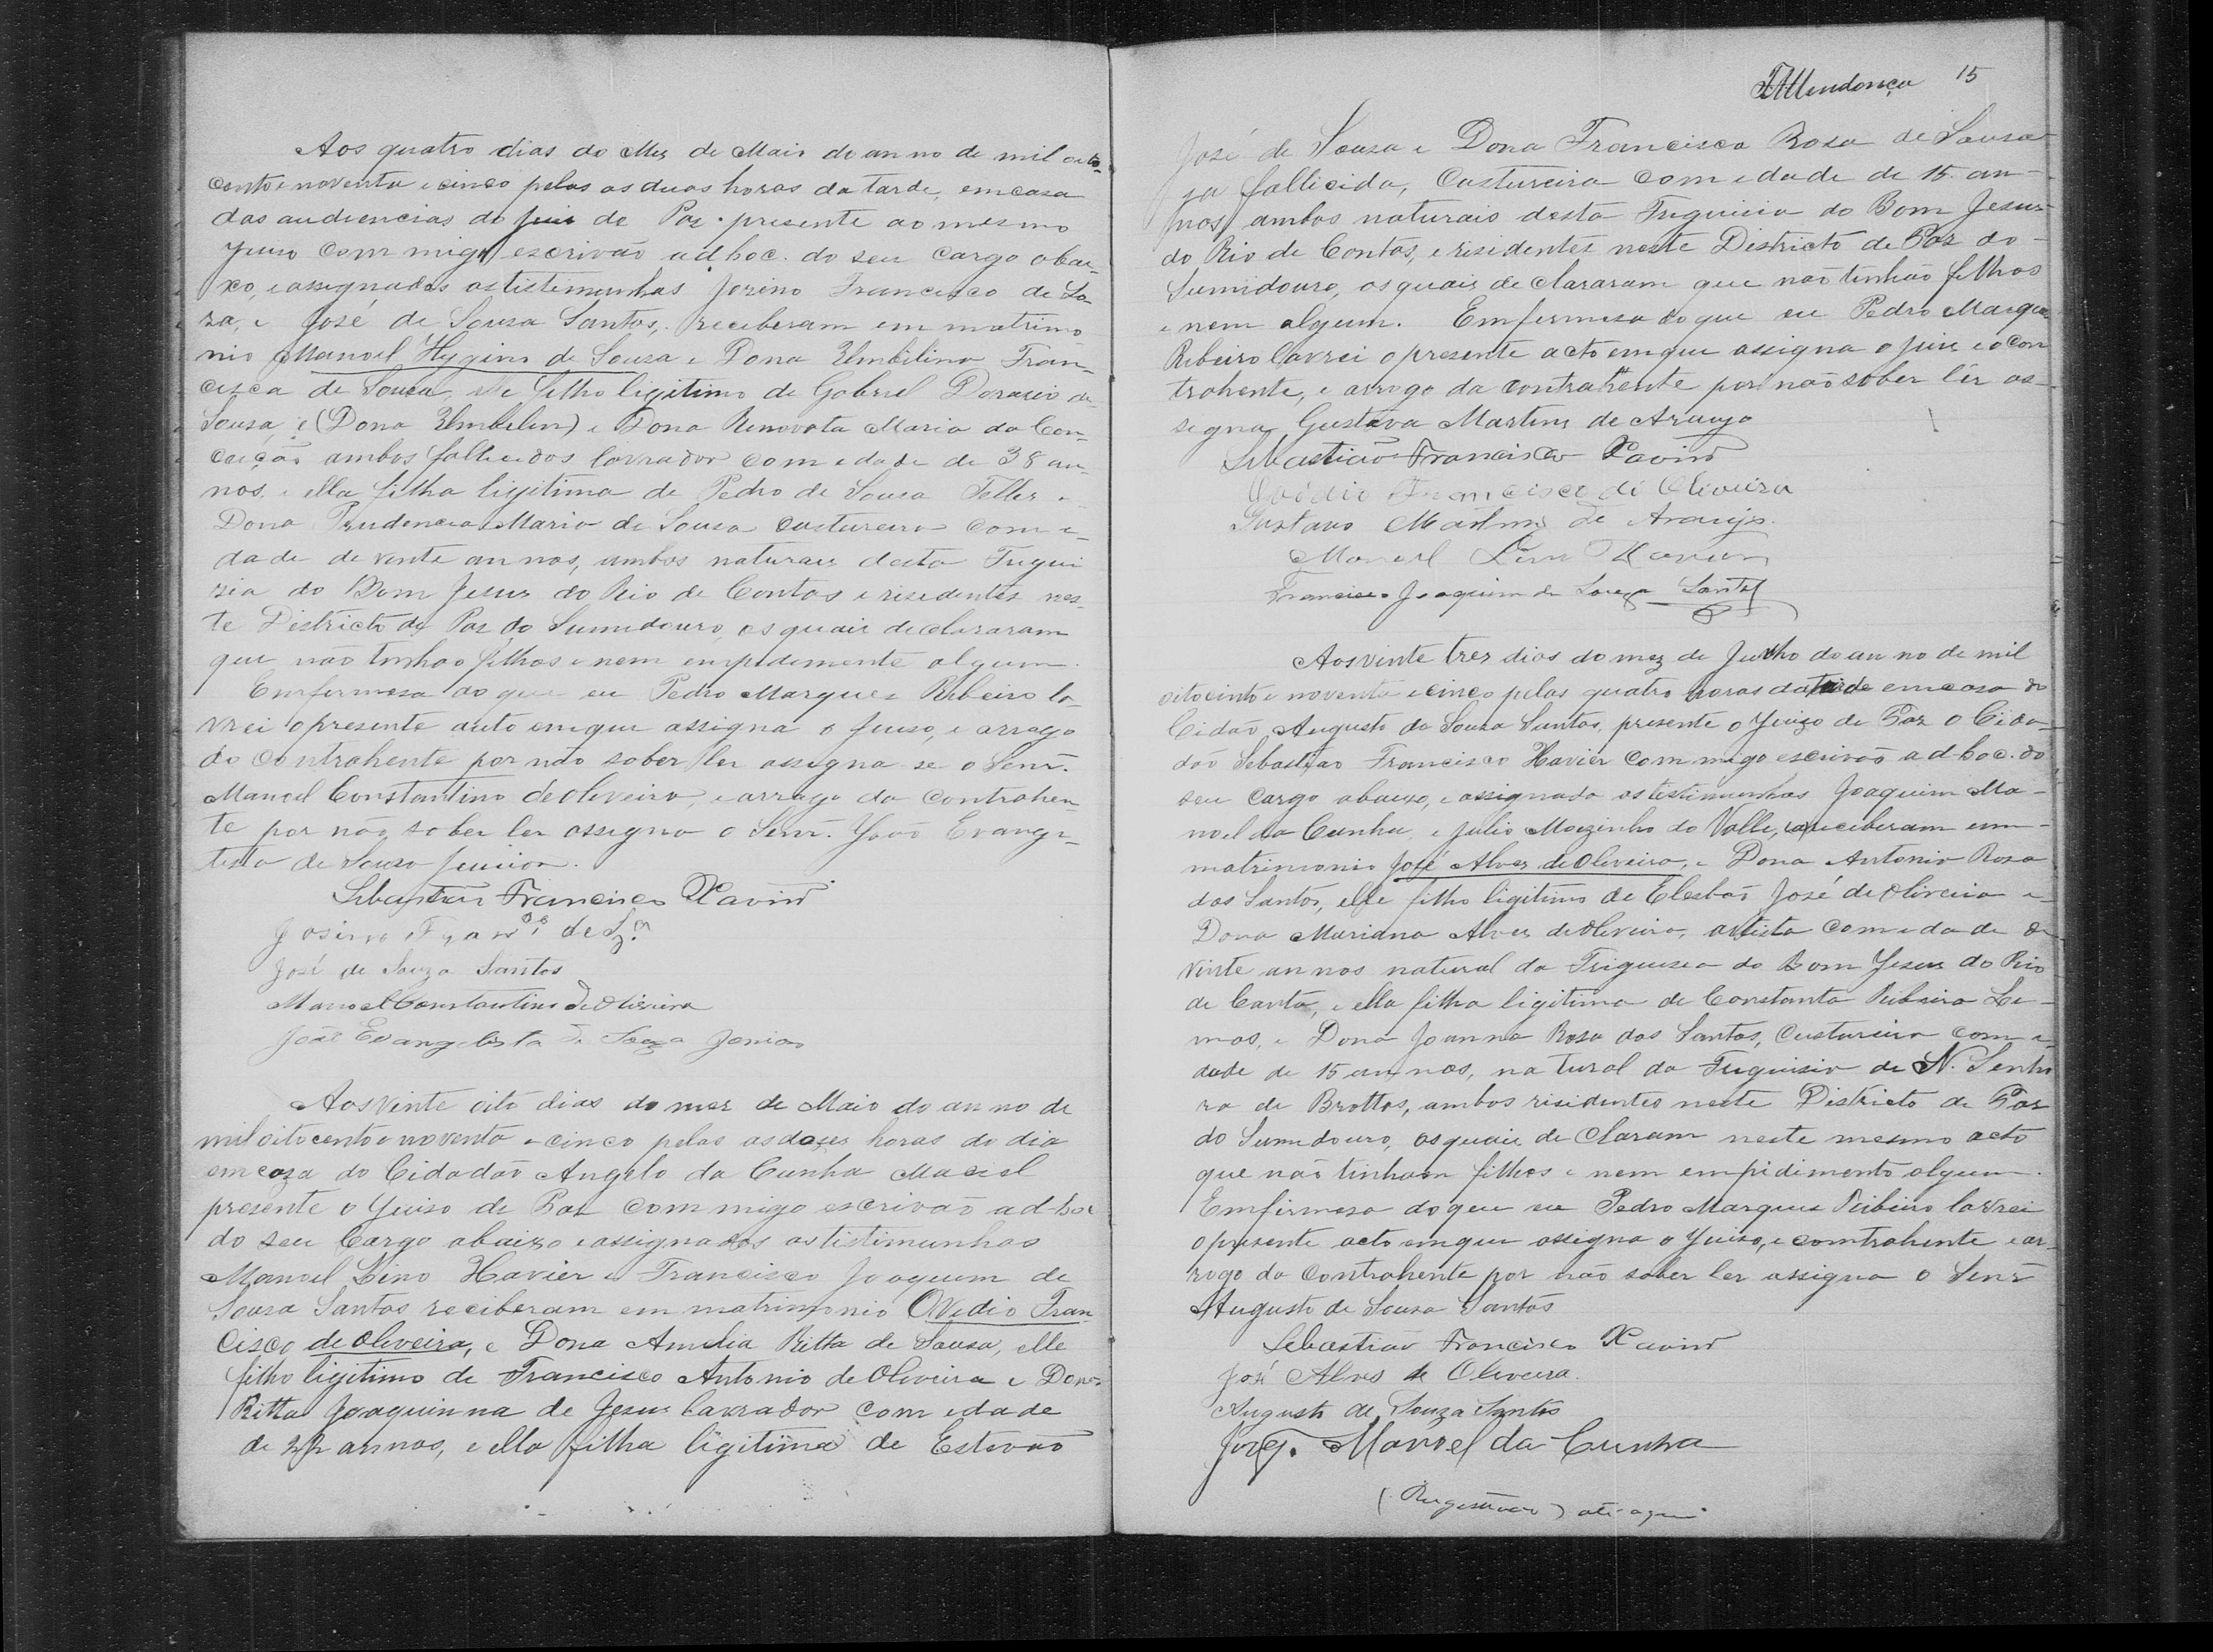 Aos quatro dias do Mez de Maio do anno de mil oito-
cento e noventa e cinco pelas as duas horas da tarde, em casa
das audiencias do juis de Paz presente ao mesmo
Juiso com migo escrivão ad hoc. do seu cargo abai-
xo, e assignados as tistimunhas Josino Francisco de So-
za, e José de Sousa Santos, receberam em matrimo
nio Manoel Hygino de Sousa e Dona Umbilina Fran-
cisca de Sousa, elle filho ligitimo de Gabriel de
Sousa, e (Dona Umbelin) e Dona Renovata Maria da Con-
ceição ambos fallicidos lavrador com edade de 38 an-
nos, e ella filha ligitima de Pedro de Sousa Telles e
Dona Prudencia Maria de Sousa custureira com e-
dade de vente annos, ambos naturais desta Frigui
zia do Bom Jesus do Rio de Contas e risidentes nes-
te Districto de Paz do Sumidouro, os quais declararam
que não tinhão filhos e nem empidimente algum.
Emfermesa do que eu Pedro Marques Ribeiro la-
vrei o presente auto em que assigna o Juiso, e arrogo
do contrahente por não saber ler assigna se o Senr.
Manoel Constantino de Oliveira, e arrogo da contrahen-
te por não saber ler assigna o Senr. João Evange-
lista de Sousa Junior.
Sebastião Francisco Xavier
Josino Franco. de Sza.
José de Souza Santos
Manoel Constantino de Oliveira
João Evangelista de Souza Junior
Aos vinte oito dias do mez de Maio do anno de
mil oitocento e noventa e cinco pelas as dozes horas do dia
em caza do Cidadão Angelo da Cunha Maciel
presente o Juiso de Paz com migo escrivão ad-hoc
do seu Cargo abaixo e assignados as tistimunhas
Manoel Lino Xavier e Francisco Joaquim de
Sousa Santos reciberam em matrimonio Ovidio Fran-
cisco de Oliveira, e Dona Amelia Ritta de Sousa, elle
filho ligitimo de Francisco Antonio de Oliveira e Dona
Ritta Joaquinna de Jesus lavrador com edade
de annos, e ella filha ligitima de Estevão
Mendonça 15
José de Sousa e Dona Francisca Rosa de Sousa
ja fallicida, Custureira com edade de 15 an-
nos ambos naturais desta Friguizia do Bom Jesus
do Rio de Contas, e risidentes neste Districto de Paz do
Sumidouro, os quais declararam que não tinhão filhos
e nem algum. Emfermesa do que eu Pedro Marques
Ribeiro lavrei o presente acto em que assigna o juis e o con
trahente, e arrogo da contrahente por não saber lêr as-
signa Gustavo Martins de Araujo
Sebastião Francisco Xavier
Ovidio Francisco di Oliveira
Gustavo Martins de Araujo.
Manoel Lino Xavier
Francisco Joaquim de Souza Santos
Aos vinte tres dias do mez de Junho do anno de mil
oitocinto e noventa e cinco pelas quatro horas da tarde em casa do
Cidão Augusto de Sousa Santos, presente o Juizo de Paz o Cida-
dão Sebastião Francisco Xavier com migo escrivão ad-hoc. do
seu Cargo abaixo, e assignado as testimunhas Joaquim Ma-
noel da Cunha, e Julio Moizinho do Valle, reciberam em
matrimonio José Alves de Oliveira, e Dona Antonia Rosa
dos Santos, elle filho ligitimo de Elesbão José de Oliveira e
Dona Mariana Alves de Oliveira, artista com edade de
vinte annos natural da Friguisia do Bom Jesus do Rio
de Conta, e ella filha ligitima de Constanto Ribeiro Le-
mos, e Dona Joanna Rosa dos Santos, Custureira com e-
dade de 15 annos, natural da Friguisia de N. Senho
ra de Brottas, ambos risidentes neste Districto de Paz
do Sumidouro, os quais de Claram neste mesmo acto
que não tinham filhos e nem empidimento algum.
Emfirmesa do que eu Pedro Marques Ribeiro lavrei
o presente acto em que assigna o Juiso, e comtrahente e ar-
rogo da contrahente por não saber ler assigna o Senr
Augusto de Sousa Santos
Sebastião Francisco Xavier
José Alves de Oliveira.
Augusto de Souza Santos
Joaqm. Manoel da Cunha
(Registrado) até aqui